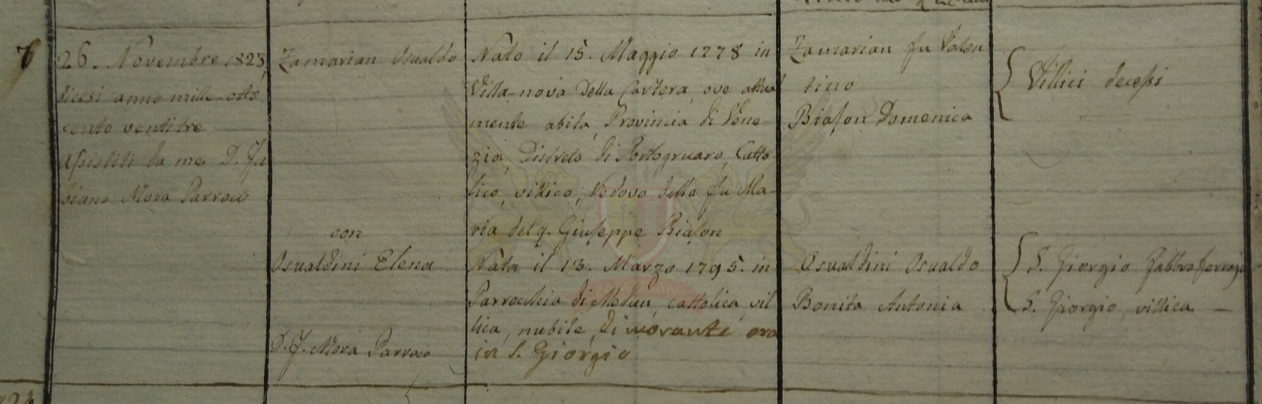 7
26. Novembre 1823
diecisi anno mille otto
cento ventitre
assistiti da me D. Fa
biano Mora Parroco
Zamarian Osvaldo
con
Osvaldini Elena
D. F. Mora Parroco
Nato il 15. Maggio 1778 in
Villa nova della Cartera, ove attual
mente abita, Provincia di Vene
zia, Distreto di Portogruaro, Catto
lico, villico, Vedovo della fu Ma-
ria del q. Giuseppe Biason
Nata il 13. Marzo 1795. in
Parrochia di Meduu cattolica, vil
lica, nubile, dimorante ora
in S. Giorgio
Zamarian fu Valen
tino
Biason Domenica
Osvaldini Osvaldo
Bonita Antonia
Villici decessi
S. Giorgio Fabbroferrajo
S. Giorgio, villica